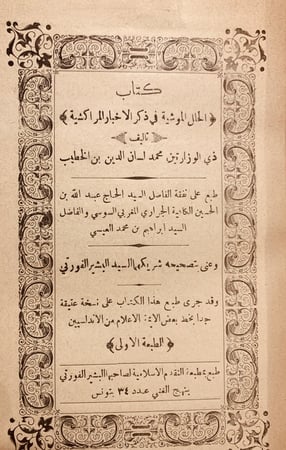 كتاب
﴿ الحلل الموشية في ذكر الاخبار المراكشية ﴾
تاليف
ذي الوزارتين محمد لسان الدين بن الخطيب
طبع على نفقة الفاضل السيد الحاج عبد الله بن
الحسين الكلابية الجراري المغربي السوسي والفاضل
السيد ابراهيم بن محمد العيسي
وعنى بتصحيحه شريكهما السيد البشير الفورتي
وقد جرى طبع هذا الكتاب على نسخة عتيقة
جدا بخط بعض الائمة الاعلام من الاندلسيين
﴿ الطبعة الاولى ﴾
طبع بمطبعة التقدم الاسلامية لصاحبها البشير الفورتي
بنهج المفتي عدد ٣٤ بتونس